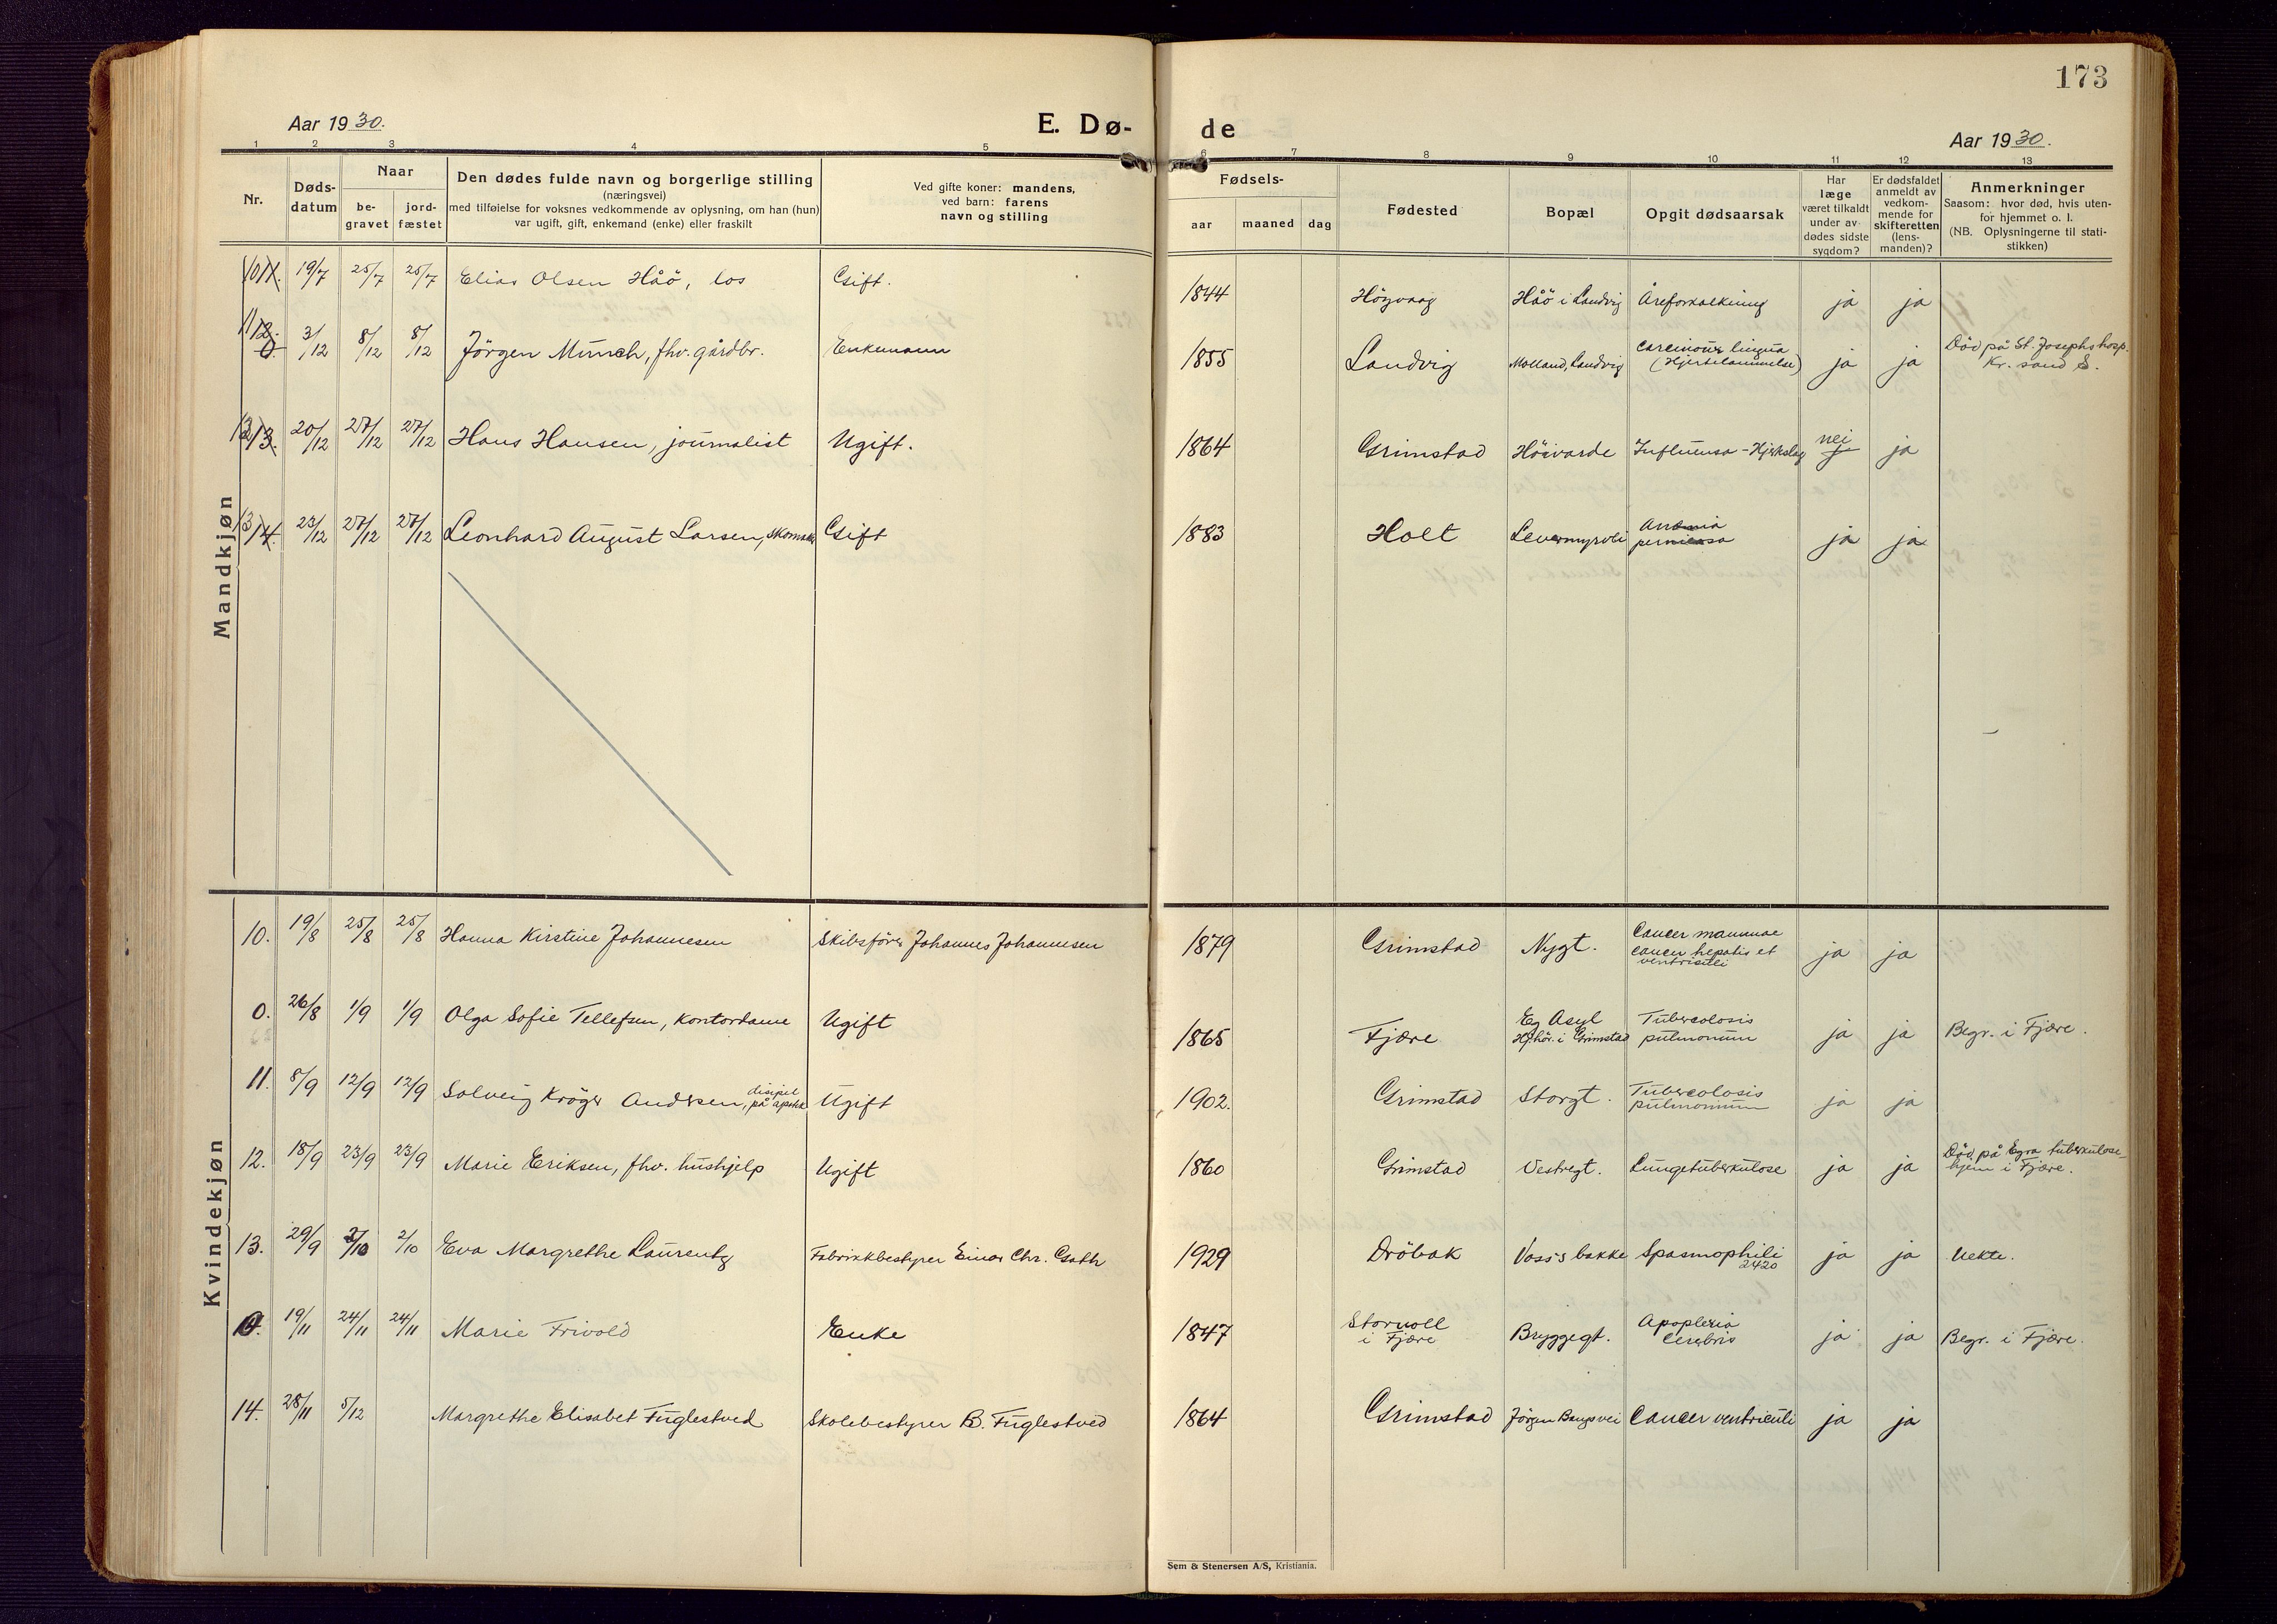 173
Aar 1930.
E. Dø-
de
Aar 1930.
1 2 3 4 5 6 7 8 9 10 11 12 13
Nr.
Døds-
datum
Naar
be-
gravet
jord-
fæstet
Den dødes fulde navn og borgerlige stilling
(næringsvei)
med tilføielse for voksnes vedkommende av oplysning, om han (hun)
var ugift, gift, enkemand (enke) eller fraskilt
Ved gifte koner: mandens,
ved barn: farens
navn og stilling
Fødsels-
aar maaned dag
Fødested
Bopæl
Opgit dødsaarsak
Har
læge
været tilkaldt
under av-
dødes sidste
sygdom?
Er dødsfaldet
anmeldt av
vedkom-
mende for
skifteretten
(lens-
manden)?
Anmerkninger
Saasom: hvor død, hvis uten-
for hjemmet o. l.
(NB. Oplysningerne til stati-
stikken)
Mandkjøn
10 11. 19/7 25/7 25/7 Elias Olsen Håö, los Gift. 1844 Högvaag Håö i Landvig Åreforkalkning ja ja
11 12. 0. 3/12 8/12 8/12 Jörgen Münch, fhv. gårdbr. Enkemann 1855 Landvig Molland, Landvig Carcinom lingua
(Hjertelammelse) ja ja Död på St. Josephs hosp.
Kr. sand S.
12 13. 20/12 27/12 27/12 Hans Hansen, journalist Ugift. 1864 Grimstad Hösvarde Influensa - Hjerteslag nei ja
13 14. 23/12 27/12 27/12 Leonhard August Larsen, skomaker Gift 1883 Holt Levermyrvei Anæmia
perniciosa ja ja
Kvindekjøn
10. 19/8 25/8 25/8 Hanna Kirstine Johannesen Skibsfører Johannes Johannesen 1879 Grimstad Nygt. Cancer mammae
cancer hepatis et
ventriculi ja ja
0. 26/8 1/9 1/9 Olga Sofie Tellefsen, kontordame Ugift 1865 Fjære Eg Asyl
Hj.hör. i Grimstad Tuberculosis
pulmonum ja ja Begr. i Fjære.
11. 8/9 12/9 12/9 Solveig Kröger Andersen, disipel
på apotek Ugift 1902. Grimstad Storgt. Tuberculosis
pulmonum ja ja
12. 18/9 23/9 23/9 Marie Eriksen, fhv. hushjelp Ugift 1860 Grimstad Vestregt. Lungetuberkulose ja ja Död på Egra tuberkulose-
hjem i Fjære.
13. 29/9 2/10 2/10 Eva Margrethe Laurentz Fabrikkbestyrer Einar Chr. Gath 1929 Dröbak Voss's bakke Spasmophili
2420 ja ja Uekte.
0. 19/11 24/11 24/11 Marie Frivold Enke 1847 Storvoll
i Fjære Bryggegt. Apoplexia
Cerebris ja ja Begr. i Fjære.
14. 28/11 5/12 Margrethe Elisabet Fuglestved Skolebestyrer B. Fuglestved 1864 Grimstad Jörgen Bangs vei Cancer ventriculi ja ja
Sem & Stenersen A/S, Kristiania.